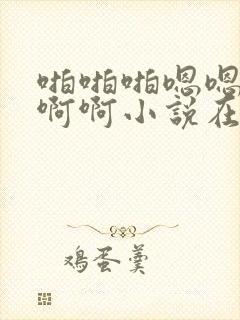 啪啪啪嗯嗯
啊啊小說在
鸡蛋羹